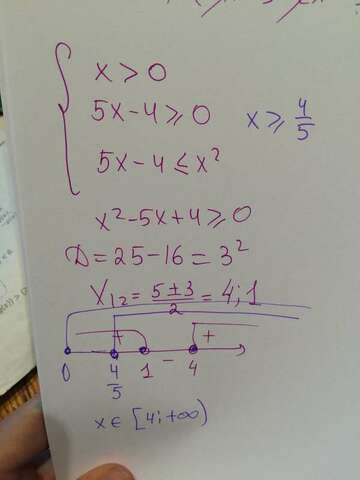 x > 0
5x-4 ⩾ 0 x ⩾ 4/5
5x-4 ≤ x²
x²-5x+4 ⩾ 0
D = 25-16 = 3²
X₁₂ = (5±3)/2 = 4; 1
+ - +
0 4/5 1 4
x ∈ [4; +∞)